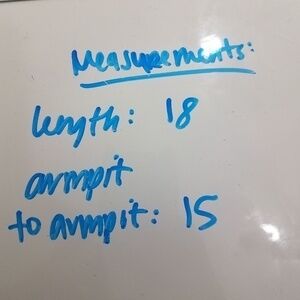 Measurements:
length: 18
armpit
to armpit: 15